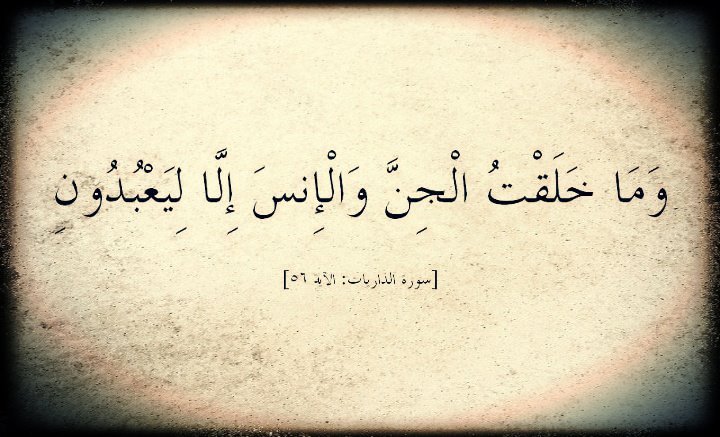 وَمَا خَلَقْتُ الْجِنَّ وَالْإِنسَ إِلَّا لِيَعْبُدُونِ
[سورة الذاريات: الآية ٥٦]